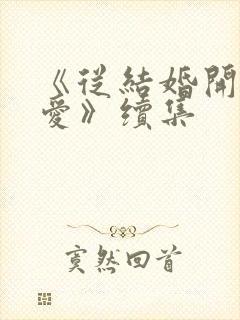 《從結婚開
愛》續集
寞然回首